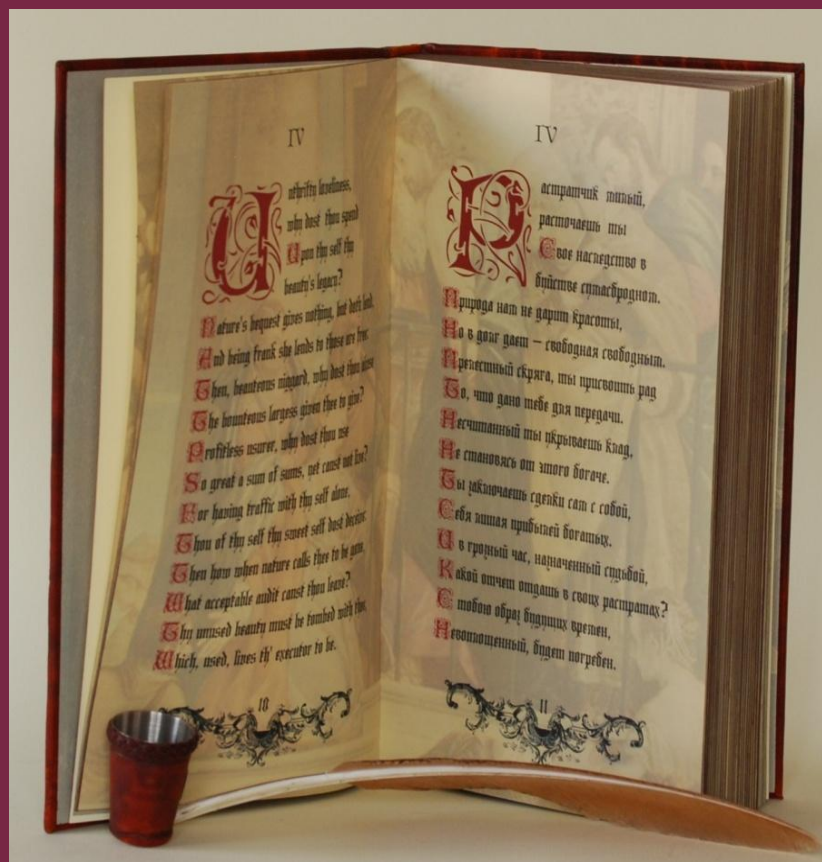 IV
Unthrifty loveliness,
why dost thou spend
Upon thy self thy
beauty's legacy?
Nature's bequest gives nothing, but doth lend,
And being frank she lends to those are free:
Then, beauteous niggard, why dost thou abuse
The bounteous largess given thee to give?
Profitless usurer, why dost thou use
So great a sum of sums, yet canst not live?
For having traffic with thy self alone,
Thou of thy self thy sweet self dost deceive:
Then how when nature calls thee to be gone,
What acceptable audit canst thou leave?
Thy unused beauty must be tombed with thee,
Which, used, lives th' executor to be.
10
IV
Растратчик милый,
расточаешь ты
Свое наследство в
буйстве сумасбродном.
Природа нам не дарит красоты,
Но в долг дает – свободная свободным.
Прелестный скряга, ты присвоить рад
То, что дано тебе для передачи.
Несчитанный ты укрываешь клад,
Не становясь от этого богаче.
Ты заключаешь сделки сам с собой,
Себя лишая прибылей богатых.
И в грозный час, назначенный судьбой,
Какой отчет отдашь в своих растратах?
С тобою образ будущих времен,
Невоплощенный, будет погребен.
11